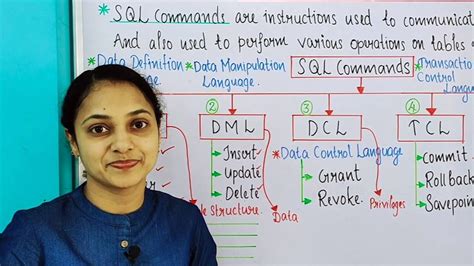 * SQL Commands are instructions used to communicat
And also used to perform various operations on tables o
* Data Definition
* Data Manipulation
Language.
SQL Commands
* Transactio
Control
Langua
②
DML
Insert ✓
Update ✓
Delete ✓
Structure.
Data
③
DCL
* Data Control Language
Grant
Revoke.
Privileges
④
TCL
Commit
Rollback
Savepoin